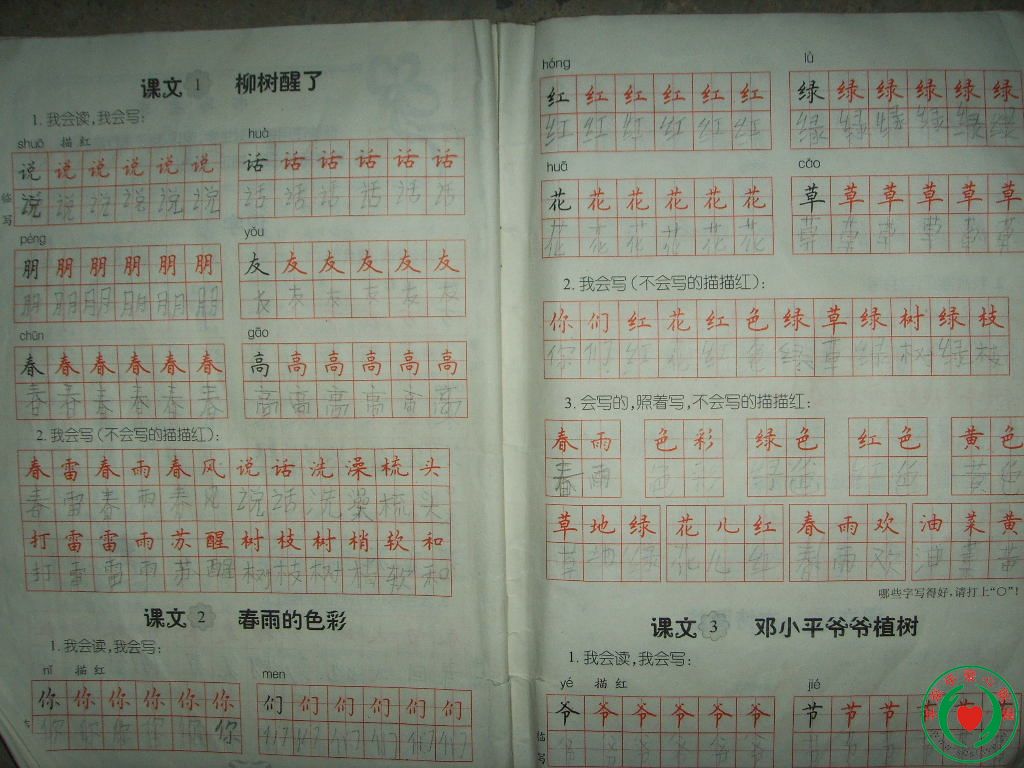 课文 1 柳树醒了
1. 我会读,我会写:
shuō 描 红 huà
说 说 说 说 说 说 话 话 话 话 话 话
临写 说 说 说 说 说 说 话 话 话 话 话 话
péng yǒu
朋 朋 朋 朋 朋 朋 友 友 友 友 友 友
朋 朋 朋 朋 朋 朋 友 友 友 友 友 友
chūn gāo
春 春 春 春 春 春 高 高 高 高 高 高
春 春 春 春 春 春 高 高 高 高 高 高
2. 我会写(不会写的描描红):
春 雷 春 雨 春 风 说 话 洗 澡 梳 头
春 雷 春 雨 春 风 说 话 洗 澡 梳 头
打 雷 雷 雨 苏 醒 树 枝 树 梢 软 和
打 雷 雷 雨 苏 醒 树 枝 树 梢 软 和
课文 2 春雨的色彩
1. 我会读,我会写:
nǐ 描 红 men
你 你 你 你 你 你 们 们 们 们 们 们
你 你 你 你 你 你 们 们 们 们 们 们
hóng lǜ
红 红 红 红 红 红 绿 绿 绿 绿 绿 绿
红 红 红 红 红 红 绿 绿 绿 绿 绿 绿
huā cǎo
花 花 花 花 花 花 草 草 草 草 草 草
花 花 花 花 花 花 草 草 草 草 草 草
2. 我会写(不会写的描描红):
你 们 红 花 红 色 绿 草 绿 树 绿 枝
你 们 红 花 红 色 绿 草 绿 树 绿 枝
3. 会写的,照着写,不会写的描描红:
春 雨 色 彩 绿 色 红 色 黄 色
春 雨 色 彩 绿 色 红 色 黄 色
草 地 绿 花 儿 红 春 雨 欢 油 菜 黄
草 地 绿 花 儿 红 春 雨 欢 油 菜 黄
哪些字写得好,请打上“○”!
课文 3 邓小平爷爷植树
1. 我会读,我会写:
yé 描 红 jié
爷 爷 爷 爷 爷 爷 节 节 节 节 节 节
临写 爷 爷 爷 爷 爷 爷 节 节 节 节